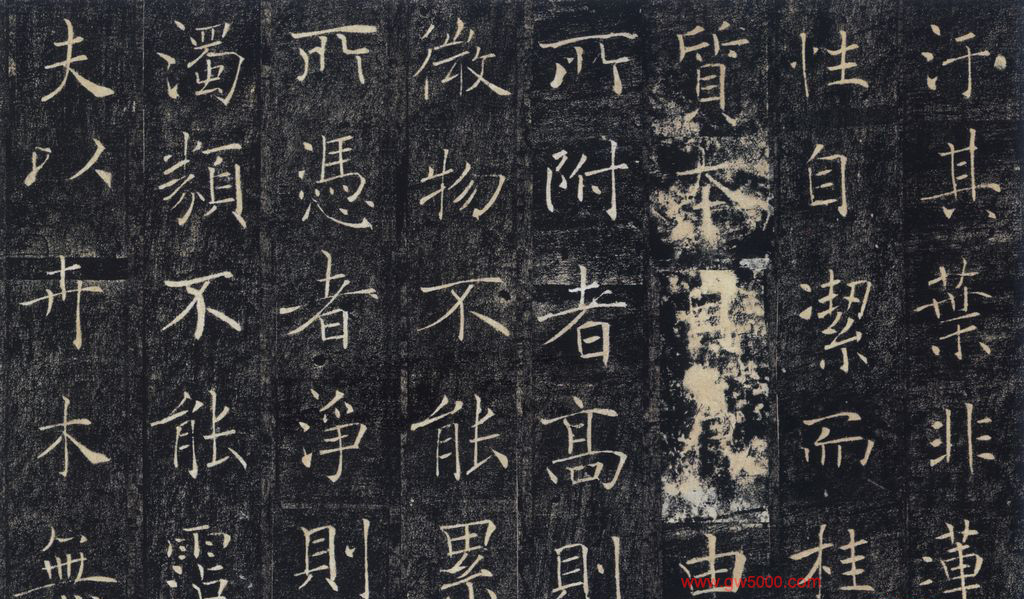 汙其葉非蓮
性自潔而桂
質本由
所附者高則
微物不能累
所憑者淨則
濁類不能霑
夫以卉木無
www.gw5000.com